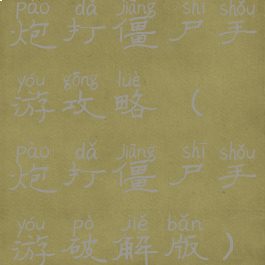 pào dǎ jiāng shī shǒu
炮打僵尸手
yóu gōng lüè
游攻略（
pào dǎ jiāng shī shǒu
炮打僵尸手
yóu pò jiě bǎn
游破解版）